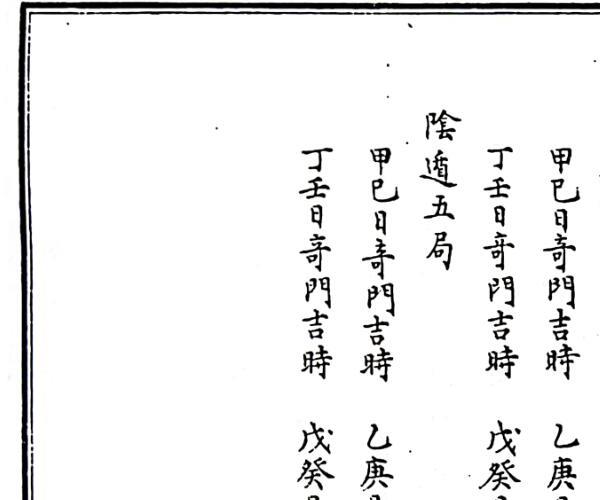 甲巳日竒門吉時　乙庚
丁壬日竒門吉時　戊癸
陰遁五局
甲巳日竒門吉時　乙庚
丁壬日竒門吉時　戊癸